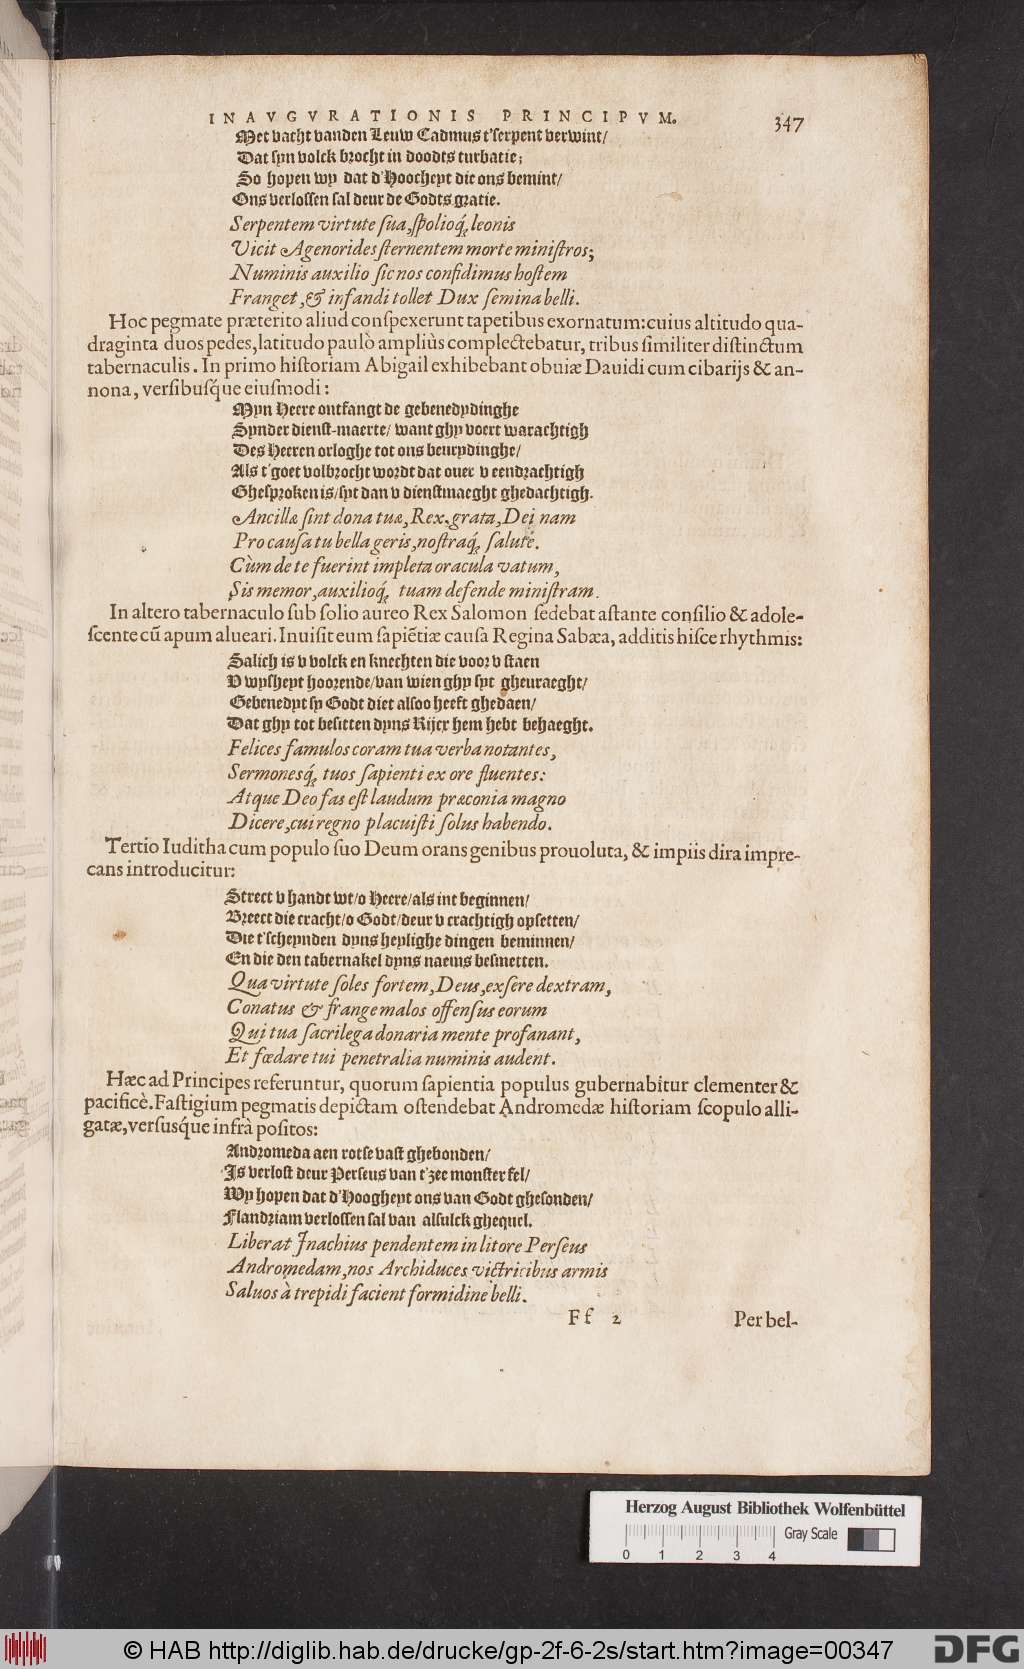 INAVGVRATIONIS PRINCIPVM. 347
Met vacht vanden Leuw Cadmus t'serpent verwint/
Dat syn volck brocht in doodts turbatie;
So hopen wy dat d'Hoocheyt die ons bemint/
Ons verlossen sal deur de Godts gratie.
Serpentem virtute sua, spolioq́; leonis
Vicit Agenorides sternentem morte ministros;
Numinis auxilio sic nos confidimus hostem
Franget, & infandi tollet Dux semina belli.
Hoc pegmate præterito aliud conspexerunt tapetibus exornatum: cuius altitudo qua-
draginta duos pedes, latitudo paulò ampliùs complectebatur, tribus similiter distinctum
tabernaculis. In primo historiam Abigail exhibebant obuiæ Dauidi cum cibarijs & an-
nona, versibusq́ue eiusmodi:
Myn Heere ontfangt de gebenedydinghe
Synder dienst-maerte/ want ghy voert warachtigh
Des Heeren orloghe tot ons beurydinghe/
Als t'goet volbrocht wordt dat ouer v eendrachtigh
Ghesproken is/ syt dan v dienstmaeght ghedachtigh.
Ancillæ sint dona tuæ, Rex, grata, Dei nam
Pro causa tu bella geris, nostraq́; salute.
Cùm de te fuerint impleta oracula vatum,
Sis memor, auxilioq́; tuam defende ministram.
In altero tabernaculo sub solio aureo Rex Salomon sedebat astante consilio & adole-
scente cũ apum alueari. Inuisit eum sapiẽtiæ causa Regina Sabæa, additis hisce rhythmis:
Salich is v volck en knechten die voor v staen
V wysheyt hoorende/ van wien ghy syt gheuraeght/
Gebenedyt sy Godt diet alsoo heeft ghedaen/
Dat ghy tot besitten dyns Rijcx hem hebt behaeght.
Felices famulos coram tua verba notantes,
Sermonesq́; tuos sapienti ex ore fluentes:
Atque Deo fas est laudum præconia magno
Dicere, cui regno placuisti solus habendo.
Tertio Iuditha cum populo suo Deum orans genibus prouoluta, & impiis dira impre-
cans introducitur:
Strect v handt wt/ o Heere/ als int beginnen/
Breect die cracht/ o Godt/ deur v crachtigh opsetten/
Die t'scheynden dyns heylighe dingen beminnen/
En die den tabernakel dyns naems besmetten.
Qua virtute soles fortem, Deus, exsere dextram,
Conatus & frange malos offensus eorum
Qui tua sacrilega donaria mente profanant,
Et fœdare tui penetralia numinis audent.
Hæc ad Principes referuntur, quorum sapientia populus gubernabitur clementer &
pacificè. Fastigium pegmatis depictam ostendebat Andromedæ historiam scopulo alli-
gatæ, versusq́ue infrà positos:
Andromeda aen rotse vast ghebonden/
Is verlost deur Perseus van t'zee monster fel/
Wy hopen dat d'Hoogheyt ons van Godt ghesonden/
Flandriam verlossen sal van alsulck ghequel.
Liberat Inachius pendentem in litore Perseus
Andromedam, nos Archiduces victricibus armis
Saluos à trepidi facient formidine belli.
Ff 2 Per bel-
Herzog August Bibliothek Wolfenbüttel
Gray Scale
0 1 2 3 4
© HAB http://diglib.hab.de/drucke/gp-2f-6-2s/start.htm?image=00347
DFG